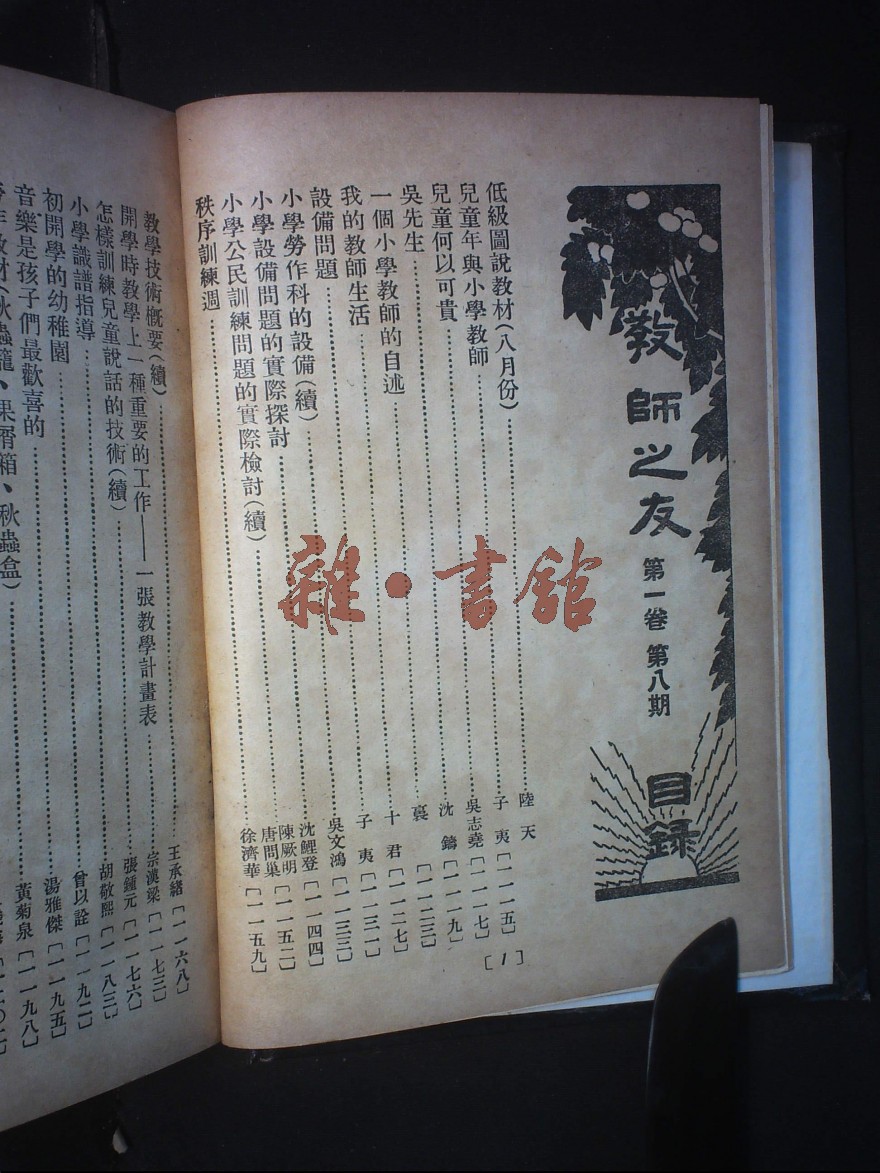 教師之友 第一卷 第八期 目錄
低級圖說教材(八月份)⋯⋯陸天
兒童年與小學教師⋯⋯子夷[一一一五]
兒童何以可貴⋯⋯吳志堯[一一一七]
吳先生⋯⋯沈鑄[一一一九]
一個小學教師的自述⋯⋯[一一二三]
我的教師生活⋯⋯十君[一一二七]
設備問題⋯⋯子夷[一一三一]
小學勞作科的設備(續)⋯⋯吳文鴻[一一三三]
小學設備問題的實際探討⋯⋯沈鯉登[一一四四]
小學公民訓練問題的實際檢討(續)⋯⋯陳厥明 唐問巢[一一五二]
秩序訓練週⋯⋯徐濟華[一一五九]
[1]
教學技術概要(續)⋯⋯王承緒[一一六八]
開學時教學上一種重要的工作——一張教學計畫表⋯⋯宗漢梁[一一七三]
怎樣訓練兒童說話的技術(續)⋯⋯張鍾元[一一七六]
小學識譜指導⋯⋯胡敬熙[一一八三]
初開學的幼稚園⋯⋯曾以詮[一一九二]
音樂是孩子們最歡喜的⋯⋯湯雅傑[一一九五]
作教材(秋蟲籠、果屑箱、秋蟲盒)⋯⋯黃菊泉[一一九八]
雜·書館